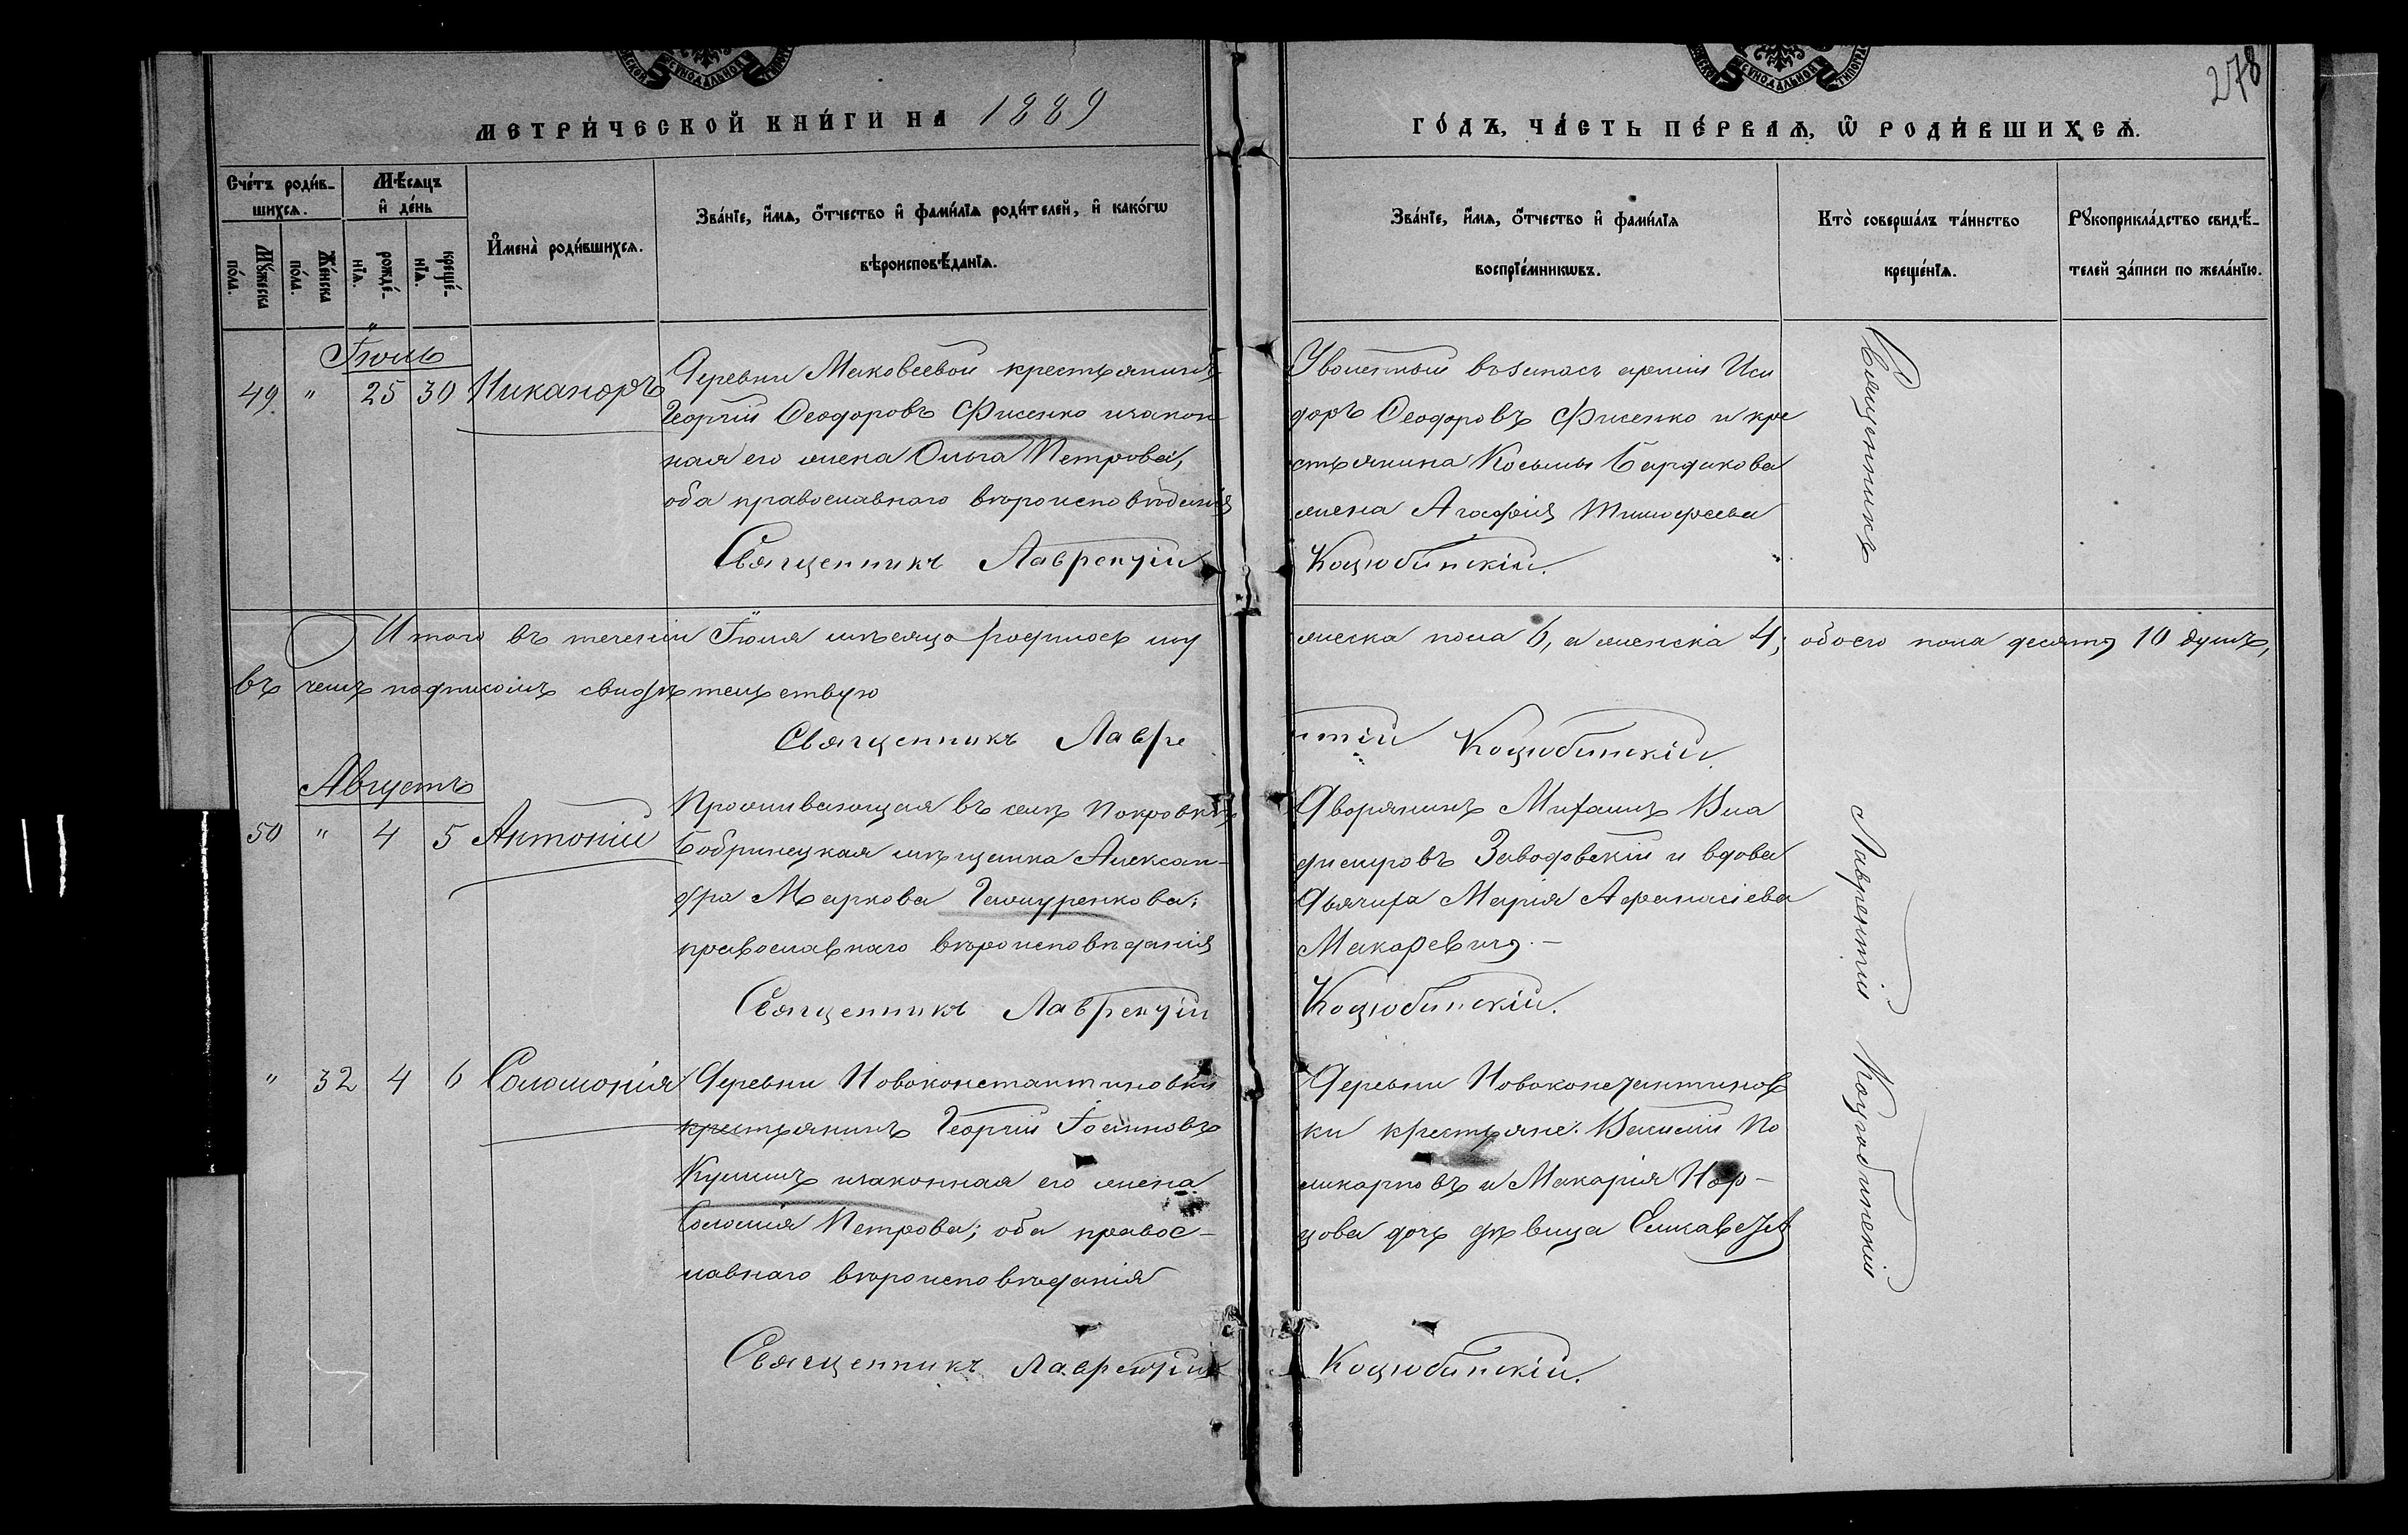 278
МЕТРИ́ЧЕСКОЙ КНИ́ГИ НА 1889
ГО́ДЪ, ЧА́СТЬ ПЕ́РВАѦ, Ѿ РОДИ́ВШИХСѦ.
Сче́тъ роди́в-
шихсѧ.
Мѣ́сѧцъ
и҆ де́нь
Мꙋ́жеска
по́ла.
Же́нска
по́ла.
рожде́-
нїѧ.
креще́-
нїѧ.
И҆мена̀ роди́вшихсѧ.
Зва́нїе, и҆́мѧ, ѻ҆́тчество и҆ фами́лїѧ роди́телей, и҆ како́гѡ
вѣроисповѣ́данїѧ.
Зва́нїе, и҆́мѧ, ѻ҆́тчество и҆ фами́лїѧ
воспрїе́мникѡвъ.
Кто̀ соверша́лъ та́инство
креще́нїѧ.
Рꙋкоприкла́дство свидѣ́-
телей за́писи по жела́нїю.
Іюль
49. " 25 30 Никаноръ
Деревни Маковеевой крестьянинъ
Георгій Ѳеодоровъ Фисенко и закон
ная его жена Ольга Петрова,
оба православнаго вѣроисповѣданія
Священникъ Лаврентій
Уволенный въ запасъ арміи Иси
доръ Ѳеодоровъ Фисенко и кре
стьянина Косьмы Бардакова
жена Агафія Тимофеева
Коцюбинскій.
Итого въ теченіи Іюля мѣсяца родилось му
жеска пола 6, а женска 4; обоего пола десять 10 душъ,
въ чемъ подписомъ свидѣтельствую
Священникъ Лавре
нтій Коцюбинскій.
Августъ
50 " 4 5 Антоній
Проживающая въ селѣ Покровкѣ
Бобринецкая мѣщанка Алексан-
дра Маркова
православнаго вѣроисповѣданія
Священникъ Лаврентій
Дворянинъ Михаилъ Вла
димировъ Заводовскій и вдова
Дьячиха Марія Афанасіева
Макаревичъ. —
Коцюбинскій.
" 32 4 6 Соломонія
Деревни Новоконстантиновки
крестьянинъ Георгій Іоанновъ
Кулишъ и законная его жена
Соломія Петрова; оба правос-
лавнаго вѣроисповѣданія
Священникъ Лаврентій
Деревни Новоконстантинов
ки крестьяне: Василій По
ликарповъ и Макарія
дочь дѣвица Елисавета
Коцюбинскій.
Священникъ Лаврентій Коцюбинскій